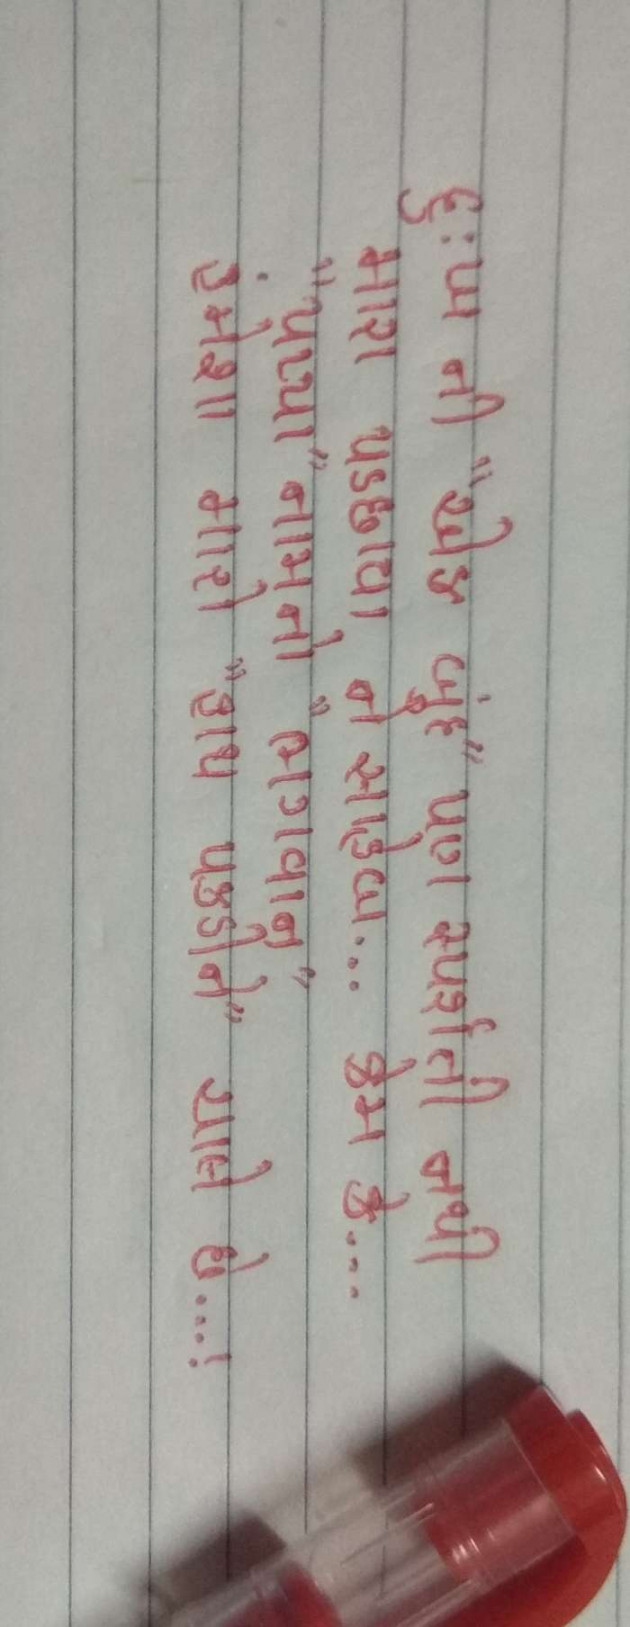 દુઃખ ની "એક બુંદ" પણ સ્પર્શતી નથી
મારા પડછાયા ને સાહેબ... કેમ કે....
"પપ્પા" નામનો "ભગવાન"
હંમેશા મારો "હાથ પકડીને" ચાલે છે...!